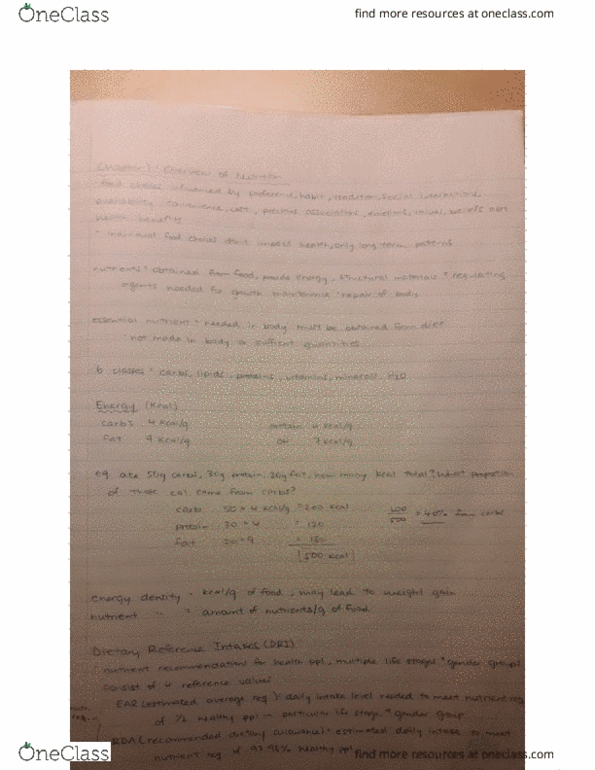 OneClass
find more resources at oneclass.com
Chapter 1: Overview of Nutrition
food choices influenced by preference, habit, tradition, social interactions,
availability, convenience, cost, positive associations, emotions, values,
health benefits
individual food choices don't impact health, only long term patterns
nutrients: obtained from food, provide energy, structural materials + regulating
agents needed for growth maintenance repair of body
essential nutrient: needed in body must be obtained from diet
not made in body in quantities
6 classes: carbs, lipids, proteins, vitamins, minerals, H2O
Energy (kcal)
carbs 4 kcal/g protein 4 kcal/g
fat 9 kcal/g 7 kcal/g
eg ate 50g carbs, 30g protein, 20g fat, how many kcal total? What proportion
of these cal come from carbs?
carb 50 × 4 kcal/g = 200 kcal 200/500 = 40% from carbs
protein 30 × 4 = 120
fat 20 × 9 = 180
500 kcal
energy density - kcal/g of food, may lead to weight gain
nutrient " = amount of nutrients/g of food
Dietary Reference Intakes (DRI)
nutrient recommendations for health ppl, multiple life stages + gender groups
consist of 4 reference values
EAR (estimated average req): daily intake level needed to meet nutrient req
of 1/2 healthy ppl in particular life stage + gender group
RDA (recommended dietary allowance): estimated daily intake to meet
nutrient req of 97-98% healthy ppl
OneClass
find more resources at oneclass.com